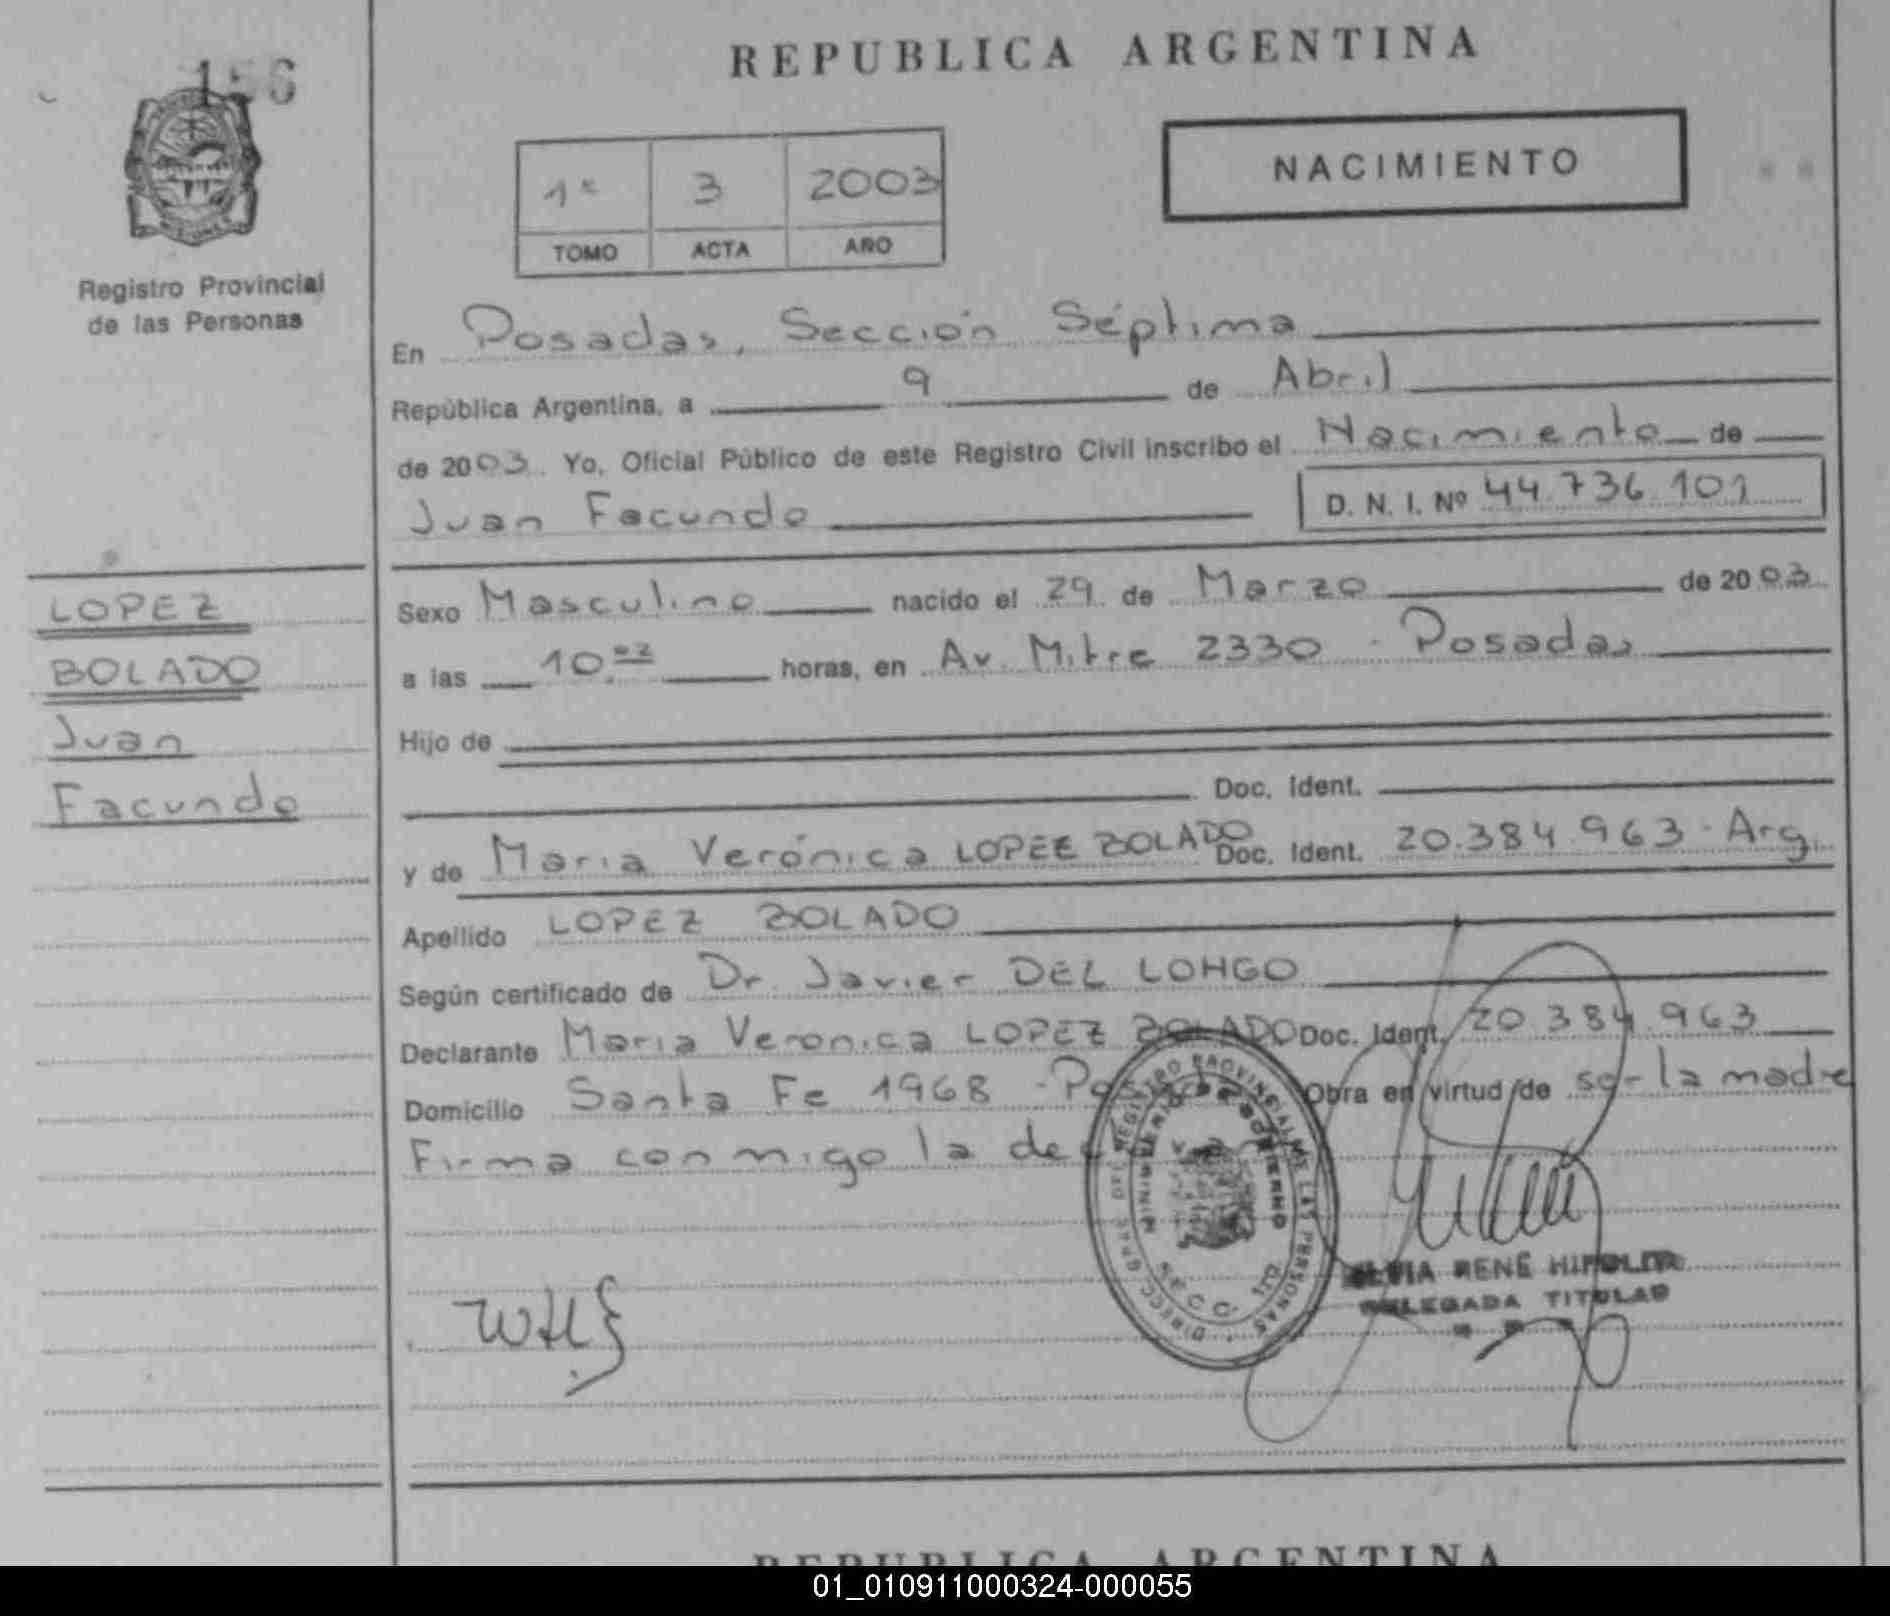 156
REPUBLICA ARGENTINA
NACIMIENTO
1º 3 2003
TOMO ACTA AÑO
Registro Provincial
de las Personas
En Posadas, Sección Séptima
República Argentina, a 9 de Abril
de 2003 Yo, Oficial Público de este Registro Civil inscribo el Nacimiento de
Juan Facundo D. N. I. Nº 44.736.101
LOPEZ
BOLADO
Juan
Facundo
Sexo Masculino nacido el 29 de Marzo de 2003
a las 10.02 horas, en Av. Mitre 2330 - Posadas
Hijo de
Doc. Ident.
y de Maria Verónica LOPEZ BOLADO Doc. Ident. 20.384.963 - Arg.
Apellido LOPEZ BOLADO
Según certificado de Dr. Javier DEL LONGO
Declarante Maria Veronica LOPEZ BOLADO Doc. Ident. 20.384.963
Domicilio Santa Fe 1968 - Posadas Obra en virtud de ser la madre
Firma conmigo la
RENÉ HIPOLITO
DELEGADA TITULAR
REPUBLICA ARGENTINA
01_010911000324-000055